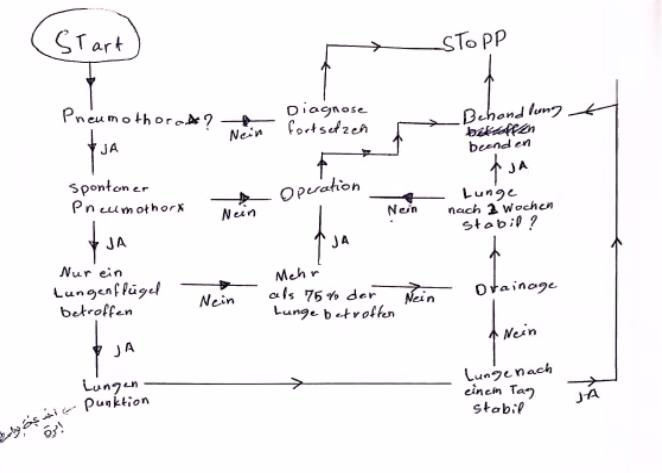 START
STOPP
Pneumothorax?
Nein
Diagnose
fortsetzen
Behandlung
beenden
JA
Spontaner
Pneumothorx
Nein
Operation
Nein
Lunge
nach 2 Wochen
stabil?
JA
JA
JA
Nur ein
Lungenflügel
betroffen
Nein
Mehr
als 75% der
Lunge betroffen
Nein
Drainage
JA
Nein
Lungen
Punktion
Lunge nach
einem Tag
stabil
JA